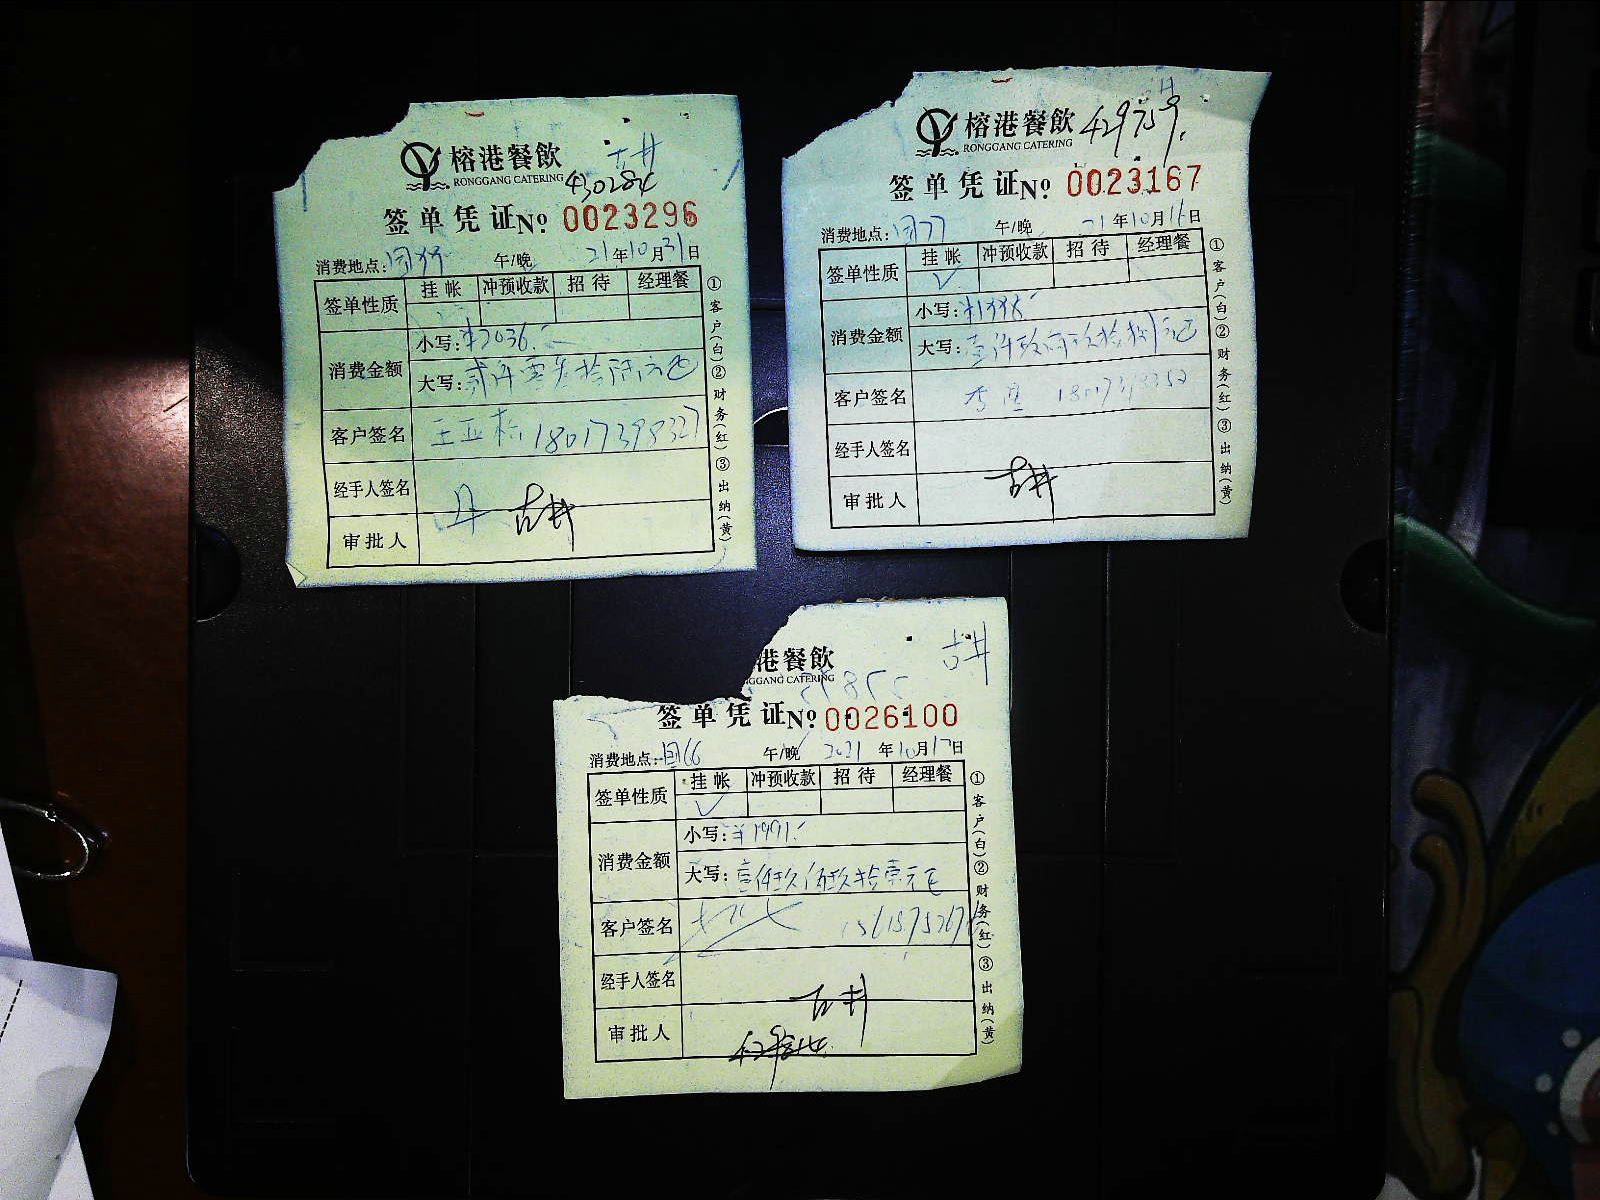 榕港餐飲 古井
RONGGANG CATERING 430284
签单凭证 № 0023296
消费地点: 午/晚 21年10月31日
签单性质 挂帐 冲预收款 招待 经理餐
消费金额 小写:¥2036.-
大写:贰仟零叁拾陆元正
客户签名 王亚栋 18017398327
经手人签名
古井
审批人
①客户(白)②财务(红)③出纳(黄)
榕港餐飲 429759.
RONGGANG CATERING
签单凭证 № 0023167
消费地点: 午/晚 21年10月16日
签单性质 挂帐 冲预收款 招待 经理餐
消费金额 小写:
大写:
客户签名
经手人签名
古井
审批人
①客户(白)②财务(红)③出纳(黄)
港餐飲 古井
GGANG CATERING
签单凭证 № 0026100
消费地点: 午/晚 2021年10月17日
签单性质 挂帐 冲预收款 招待 经理餐
消费金额 小写:¥1991.-
大写:壹仟玖佰玖拾壹元正
客户签名
经手人签名
古井
审批人
①客户(白)②财务(红)③出纳(黄)